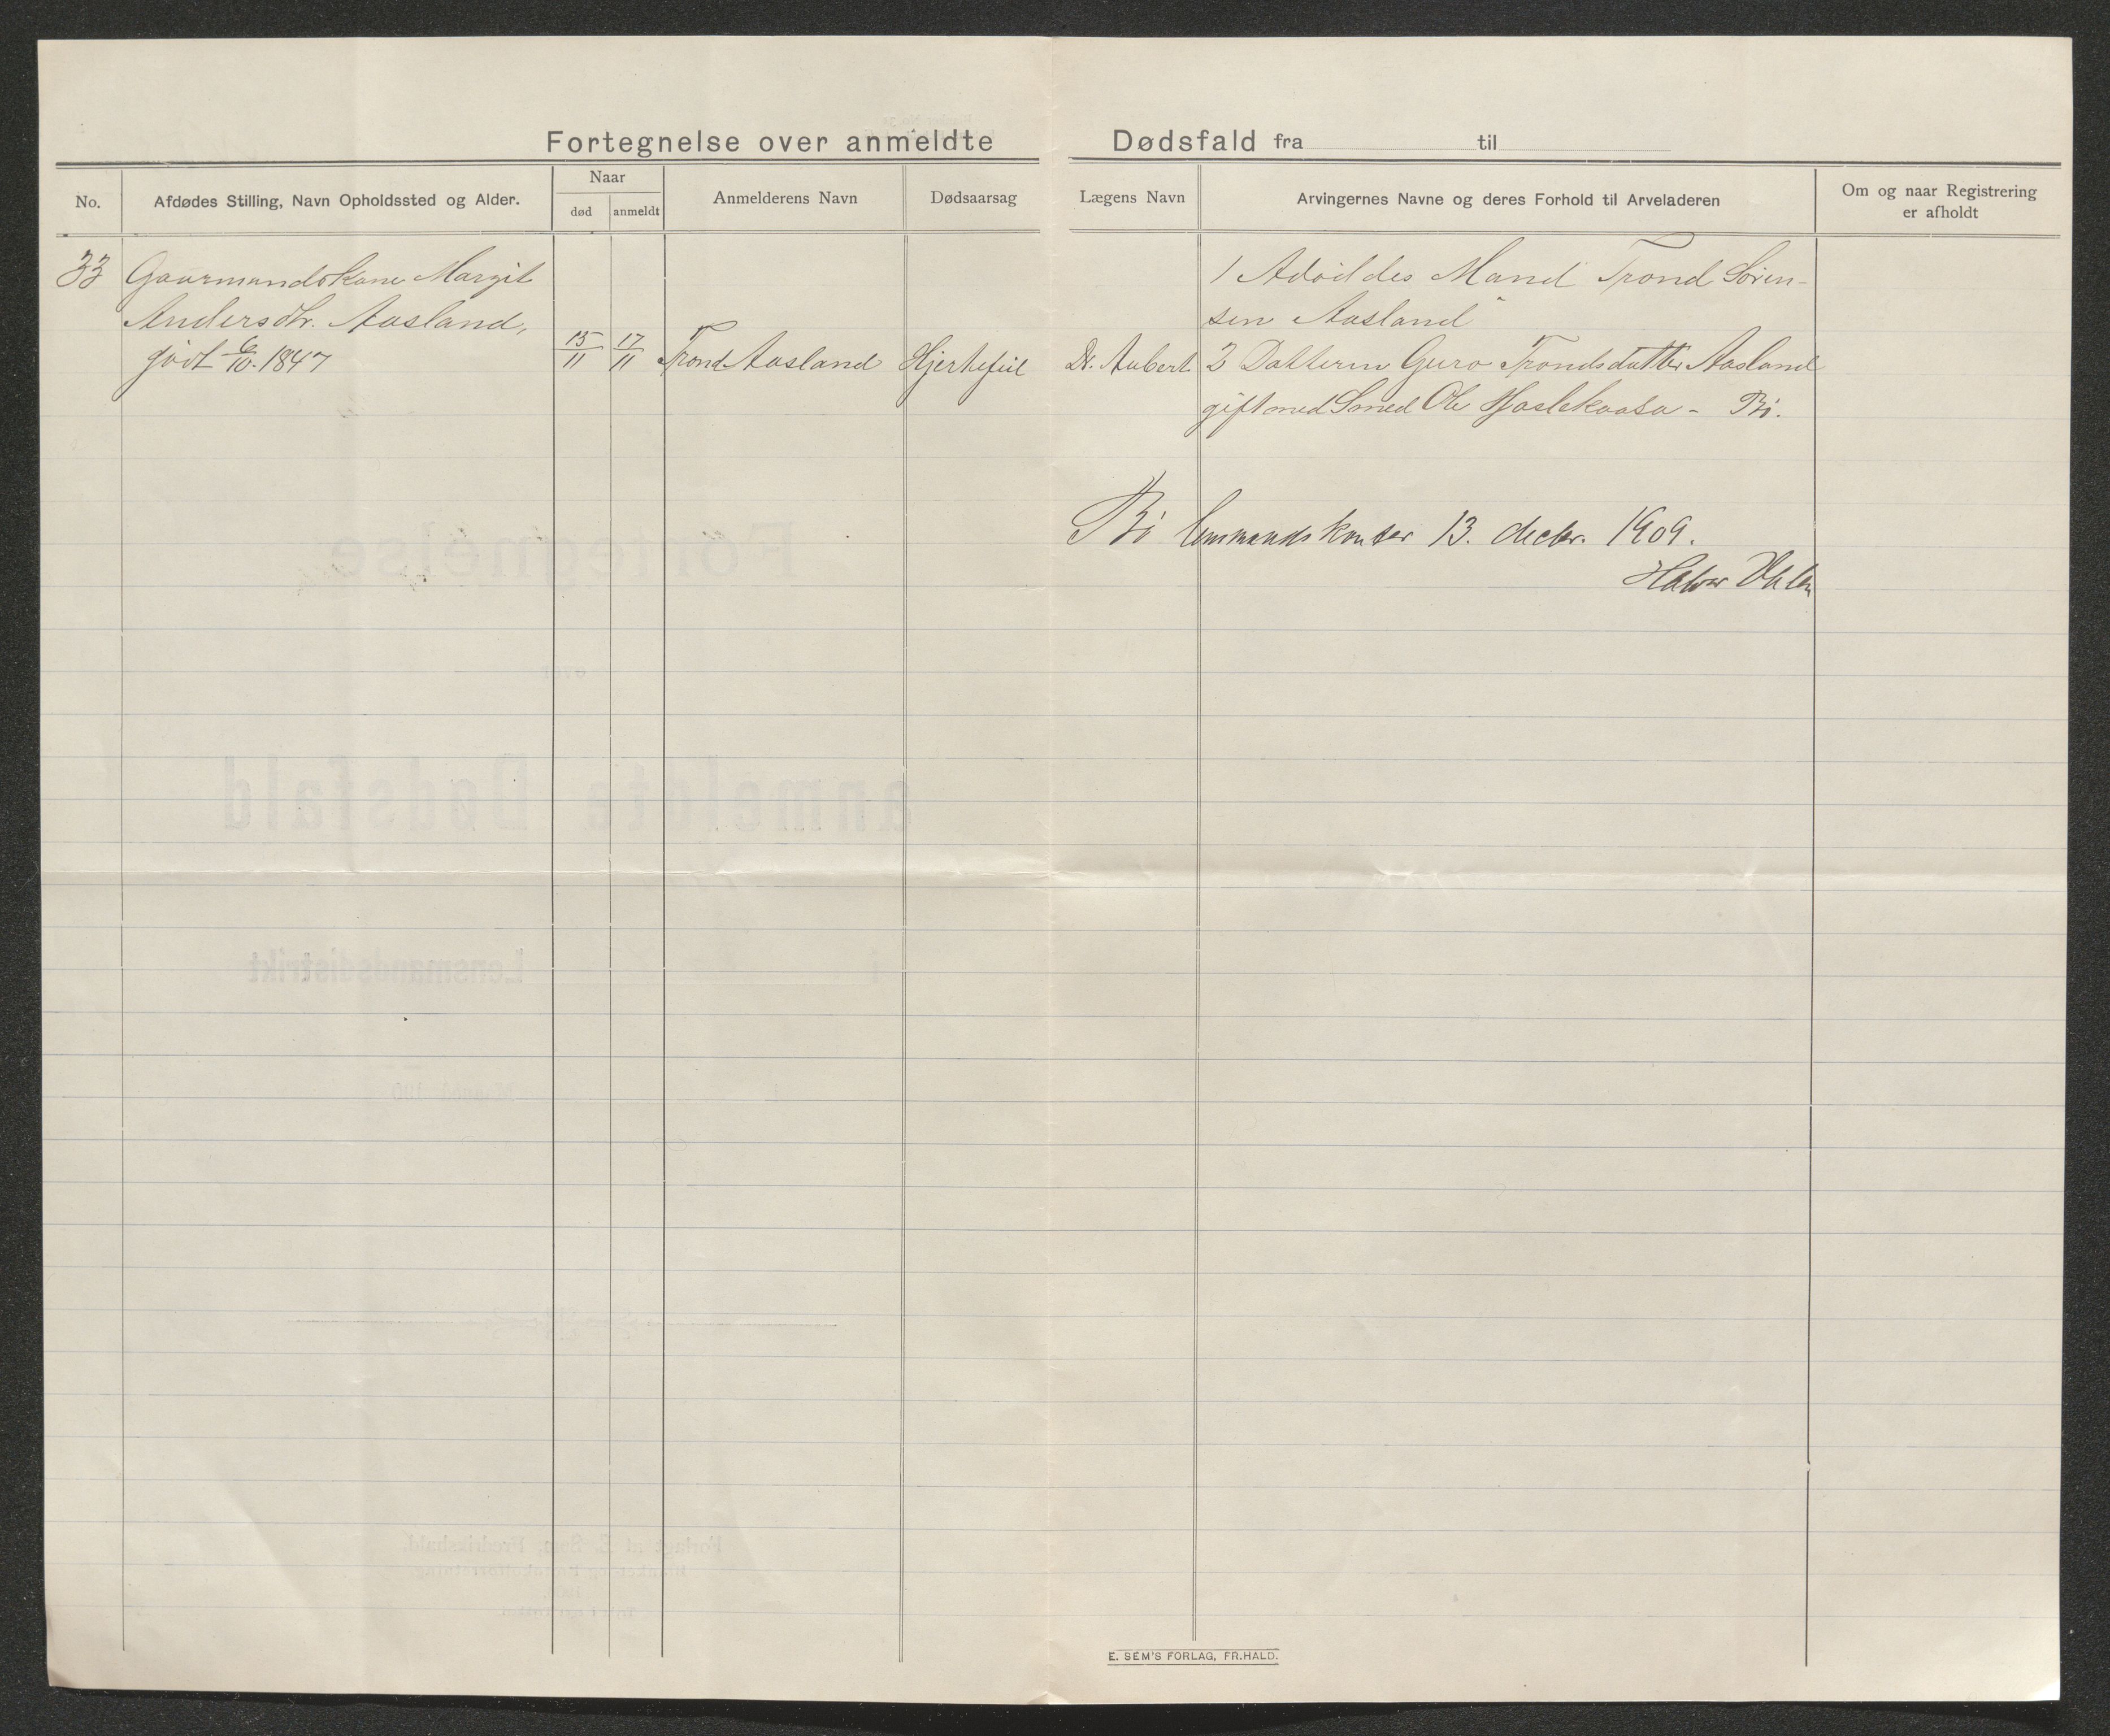 Fortegnelse over anmeldte Dødsfald fra til
No.
Afdødes Stilling, Navn Opholdssted og Alder.
Naar
død
anmeldt
Anmelderens Navn
Dødsaarsag
Lægens Navn
Arvingernes Navne og deres Forhold til Arveladeren
Om og naar Registrering
er afholdt
33
Gaarmandskone Margit
Andersdtr. Aasland,
født 6/10. 1847
15/11
17/11
Trond Aasland
Hjertefeil
Dr. Aubert
1 Afdødes Mand Trond Søren-
sen Aasland
2 Datteren Guro Trondsdatter Aasland
gift med Smed Ole Haslekaasa - Bø.
Bø lensmandskontor 13. decbr. 1909.
Halvor
E. SEM'S FORLAG, FR.HALD.